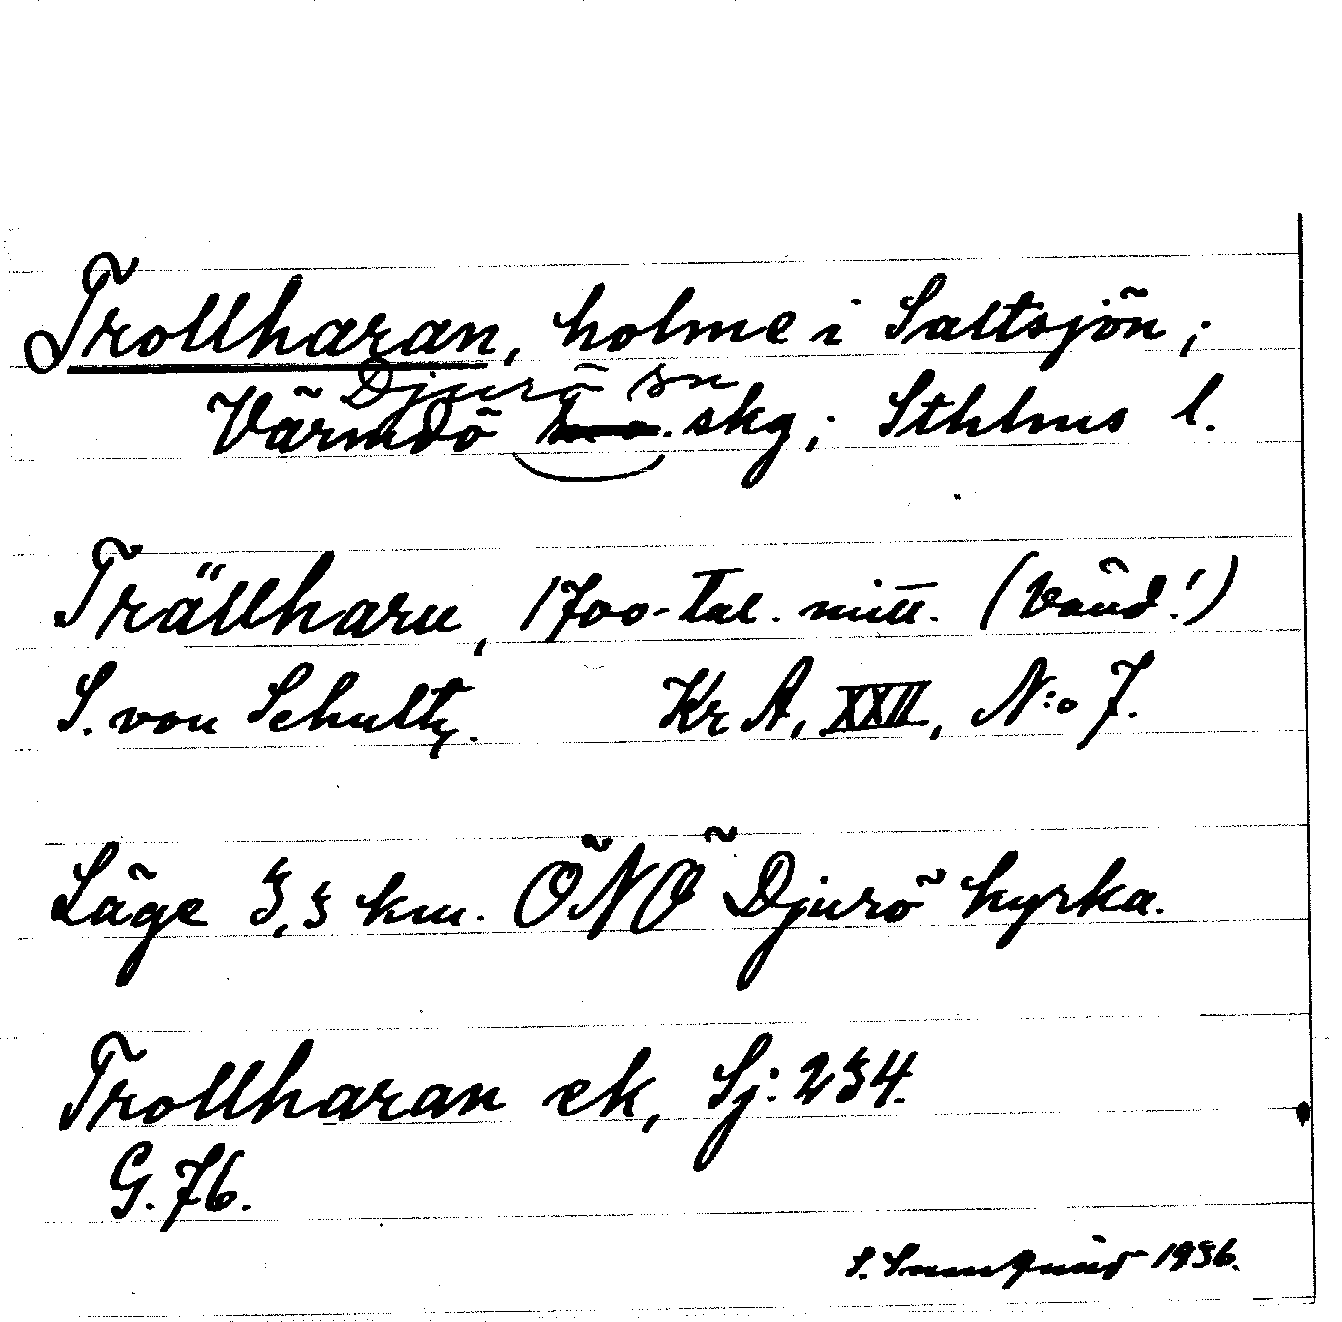 Trollharan, holme i Saltsjön;
Djurö sn
Värmdö skg; Sthlms l.
Trällharu, 1700-tal. mitt. (Vänd!)
S. von Schultz. Kr A, XXII, N:o 7.
Läge 3,3 km. ÖNÖ Djurö kyrka.
Trollharan ek, Sj: 234.
G. 76.
S. 1936.